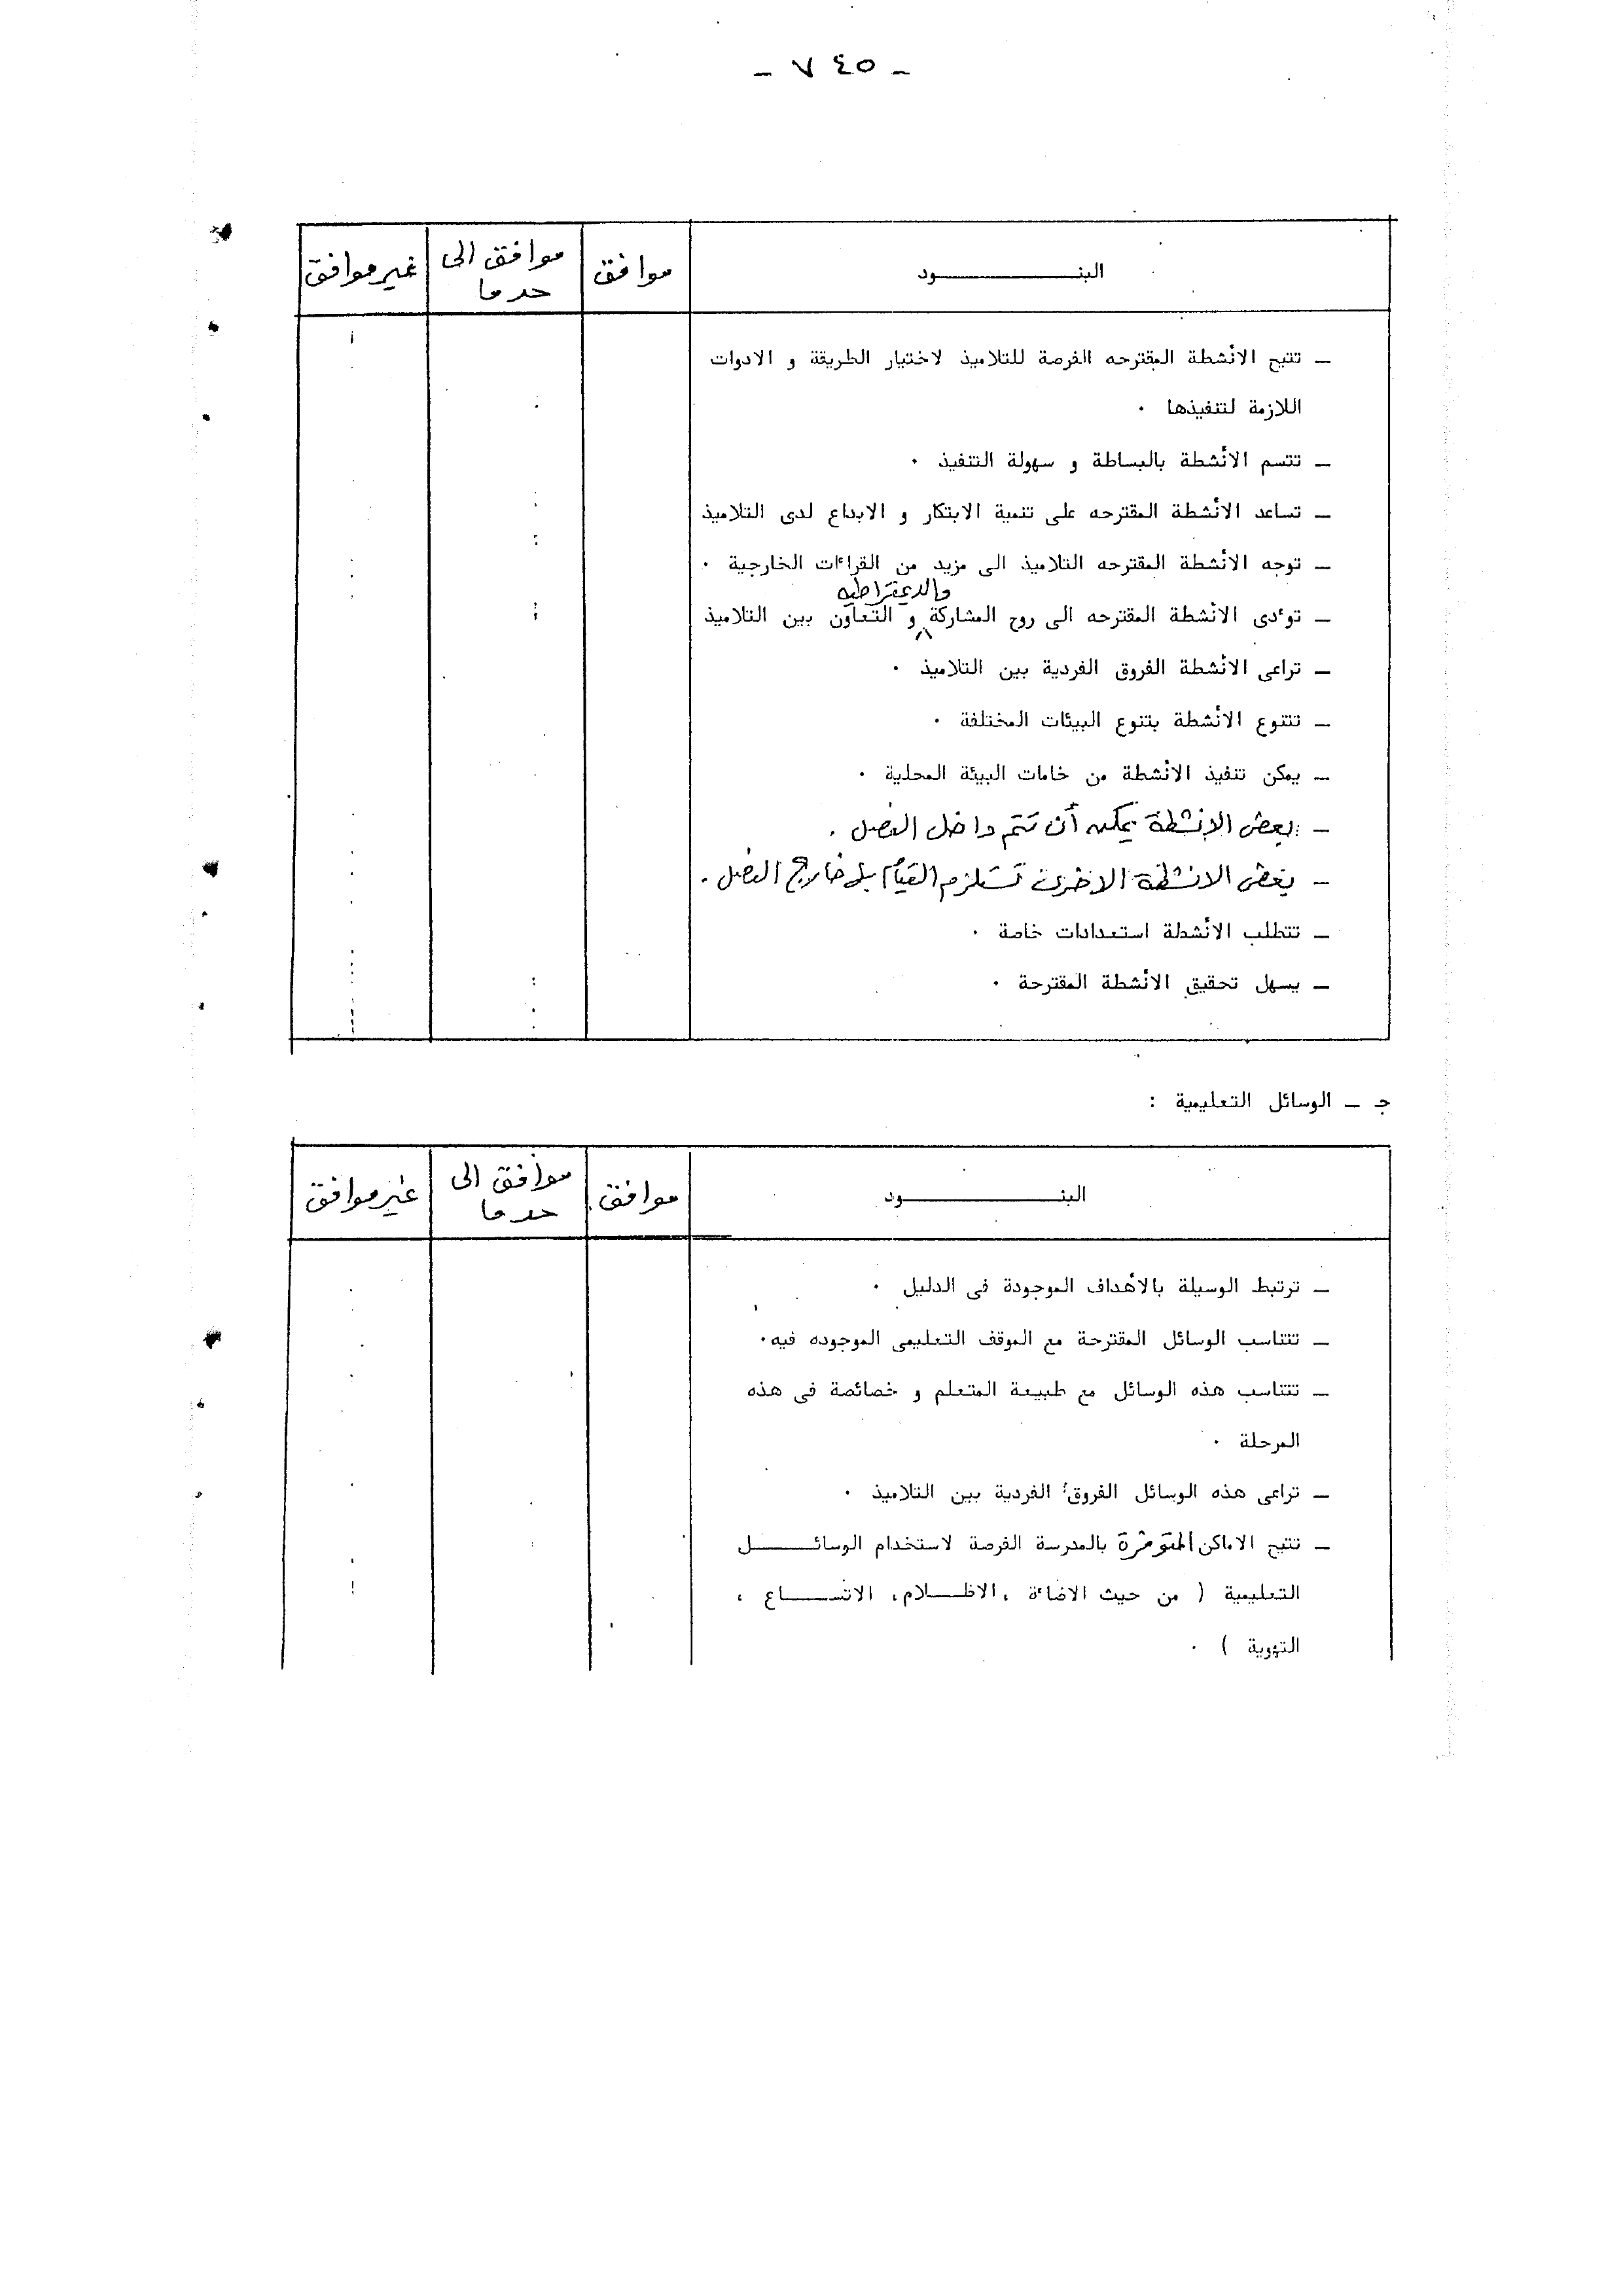 - ٧٤٥ -
البنـــــــــود موافق موافق الى حد ما غير موافق
ـ تتيح الأنشطة المقترحه الفرصة للتلاميذ لاختيار الطريقة و الادوات
اللازمة لتنفيذها ٠
ـ تتسم الأنشطة بالبساطة و سهولة التنفيذ ٠
ـ تساعد الأنشطة المقترحه على تنمية الابتكار و الابداع لدى التلاميذ
ـ توجه الأنشطة المقترحه التلاميذ الى مزيد من القراءات الخارجية ٠
والديمقراطيه
ـ توءدى الأنشطة المقترحه الى روح المشاركة و التعاون بين التلاميذ
ـ تراعى الأنشطة الفروق الفردية بين التلاميذ ٠
ـ تتنوع الأنشطة بتنوع البيئات المختلفة ٠
ـ يمكن تنفيذ الأنشطة من خامات البيئة المحلية ٠
ـ بعض الانشطة يمكن أن تتم داخل الفصل .
ـ بعض الانشطة الاخرى تستلزم القيام بها خارج الفصل .
ـ تتطلب الأنشطة استعدادات خاصة ٠
ـ يسهل تحقيق الأنشطة المقترحة ٠
جـ ـ الوسائل التعليمية :
البنـــــــــود موافق موافق الى حد ما غير موافق
ـ ترتبط الوسيلة بالأهداف الموجودة فى الدليل ٠
ـ تتناسب الوسائل المقترحة مع الموقف التعليمى الموجوده فيه٠
ـ تتناسب هذه الوسائل مع طبيعة المتعلم و خصائصة فى هذه
المرحلة ٠
ـ تراعى هذه الوسائل الفروق الفردية بين التلاميذ ٠
ـ تتيح الاماكن المتوفرة بالمدرسة الفرصة لاستخدام الوسائـــــل
التعليمية ( من حيث الاضاءة ، الاظـــلام، الاتســـاع ،
التهوية ) ٠